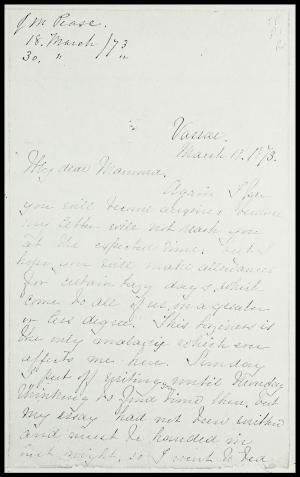 J M Pease.
18. March /73
30. " / "
Vassar.
March 17. 1873.
My dear Mamma.
Again I fear
you will become anxious, because
my letter will not reach you
at the expected time. But I
hope you will make allowances
for certain lazy days, which
come to all of us, in a greater
or less degree. This laziness is
the only malady which ever
affects me here. Sunday
I put off writing until Monday
thinking to find time then, but
my essay had not been written
and must be handed in
that night, so I went to bed